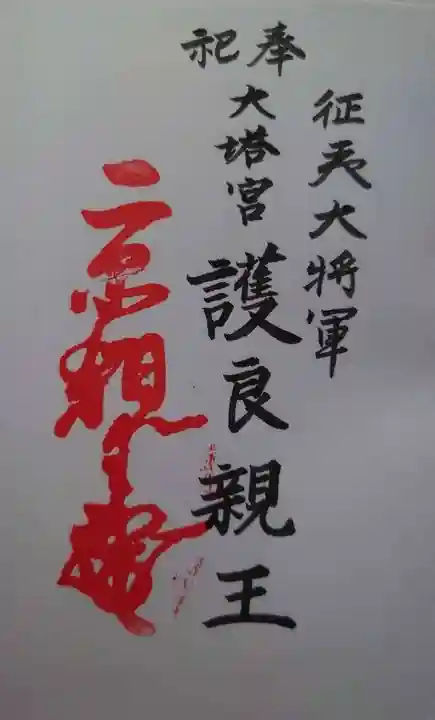 奉祀
征夷大将軍
大塔宮
護良親王